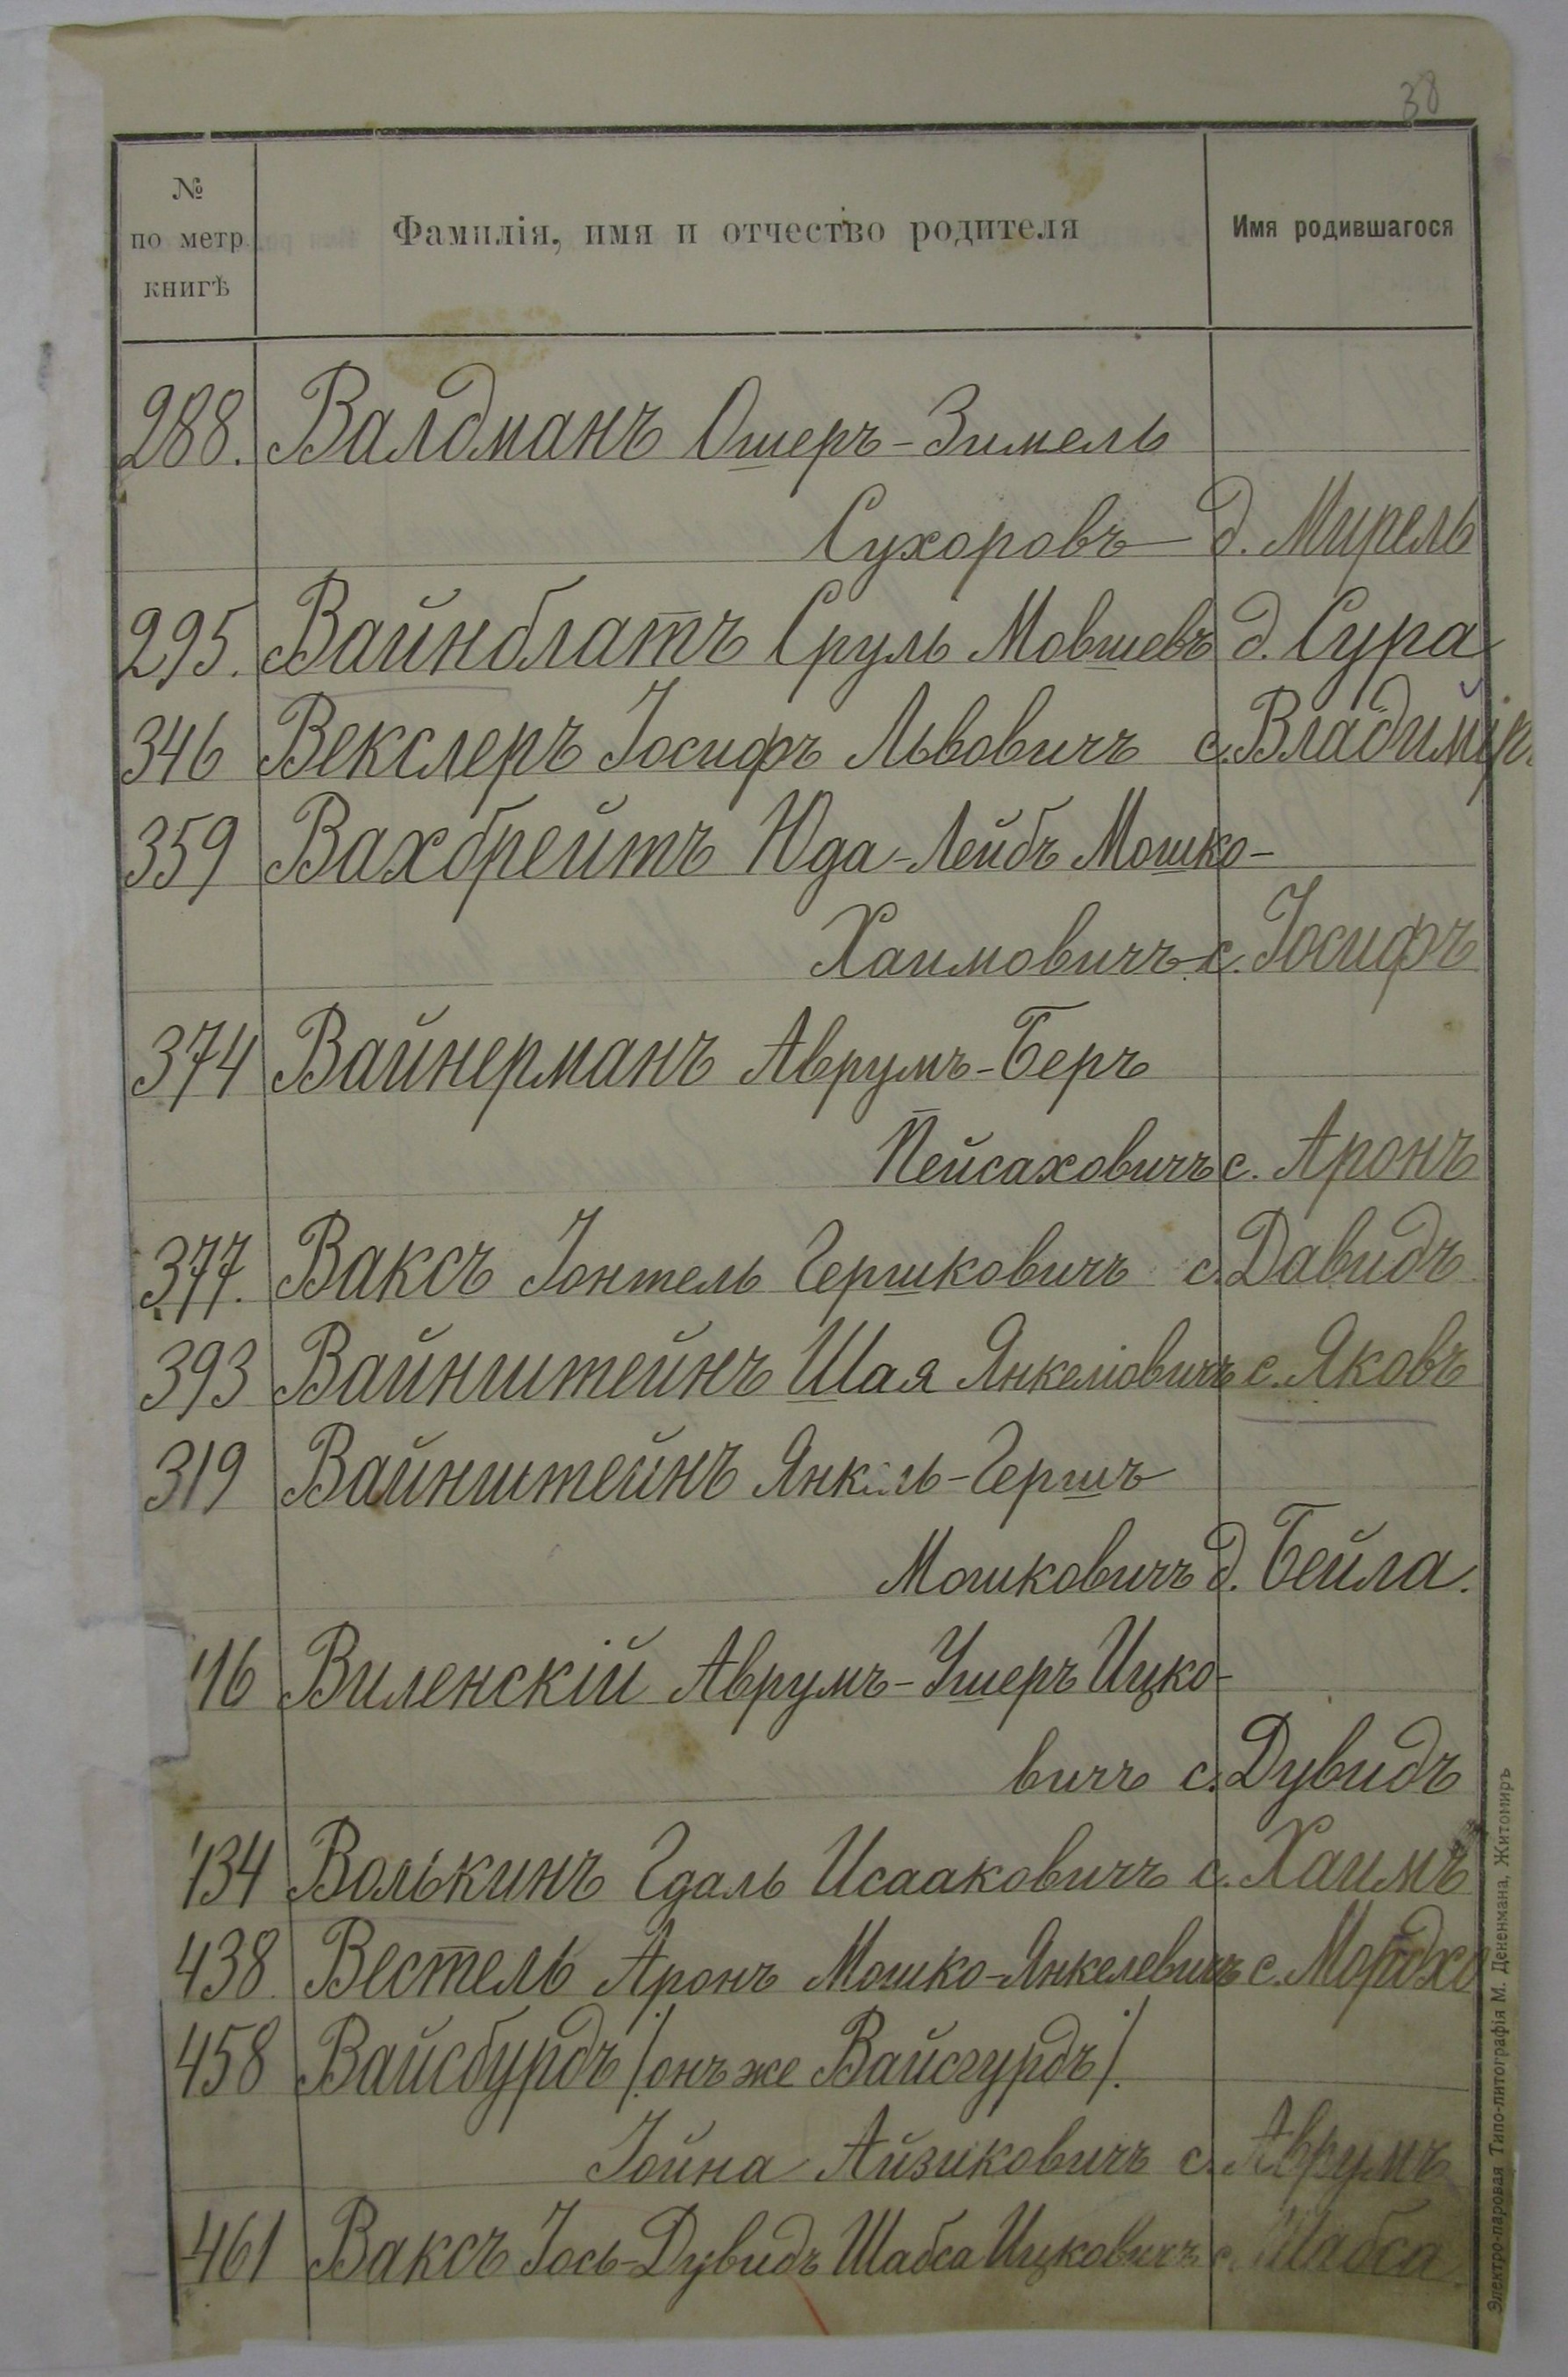 38
№
по метр.
книгѣ
Фамилія, имя и отчество родителя
Имя родившагося
288. Валдманъ Ошеръ-Зимель
Сухоровъ д. Мирель
295. Вайнблатъ Сруль Мовшевъ д. Сура
346 Векслеръ Іосифъ Львовичъ с. Владиміръ
359 Вахбрейтъ Юда-Лейбъ Мошко-
Хаимовичъ с. Іосифъ
374 Вайнерманъ Аврумъ-Беръ
Пейсаховичъ с. Аронъ
377. Ваксъ Іонтель Гершковичъ с. Давидъ
393 Вайнштейнъ Шая Янкеліовичъ с. Яковъ
319 Вайнштейнъ Янкель-Гершъ
Мошковичъ д. Бейла.
16 Виленскій Аврумъ-Ушеръ Ицко-
вичъ с. Дувидъ
434 Волькинъ Гдаль Исааковичъ с. Хаимъ
438 Вестель Аронъ Мошко-Янкелевичъ с. Мордхо
458 Вайсбурдъ /онъ же Вайсгурдъ/.
Іойна Айзиковичъ с. Аврумъ
461 Ваксъ Іось-Дувидъ Шабса Ицковичъ с. Шабса
Электро-паровая Типо-литографія М. Дененмана, Житомиръ